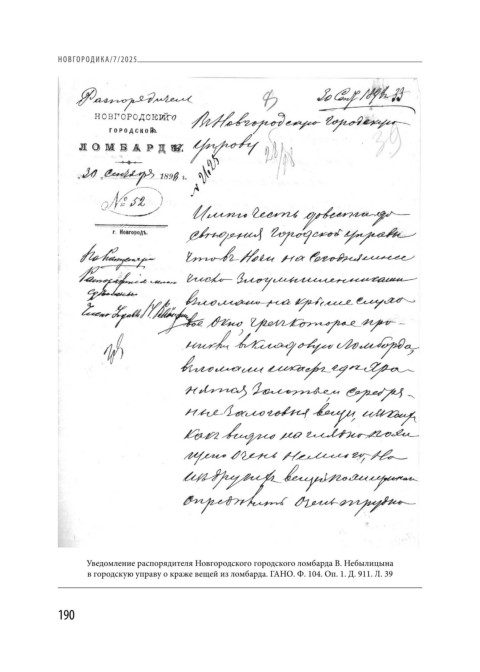 НОВГОРОДИКА/7/2025
Распорядитель
НОВГОРОДСКАГО
ГОРОДСКОЙ
ЛОМБАРДЪ
30 Сентября 1898 г.
№ 52
г. Новгородъ.
30 Сент. 1898
39
В Новгородскую Городскую
Управу
№ 2125
Имею честь довести до
сведения Городской Управы
что в ночи на сегодняшнее
число злоумышленниками
взломано на крыше слухо
вое окно чрез которое про-
никли в кладовую Ломбарда,
взломали шкаф где хра
нятся золотые и серебря-
ные залоговые вещи,
как видно на глядно похи
щено очень немного, но
вещей
определить очень трудно
Уведомление распорядителя Новгородского городского ломбарда В. Небылицына
в городскую управу о краже вещей из ломбарда. ГАНО. Ф. 104. Оп. 1. Д. 911. Л. 39
190